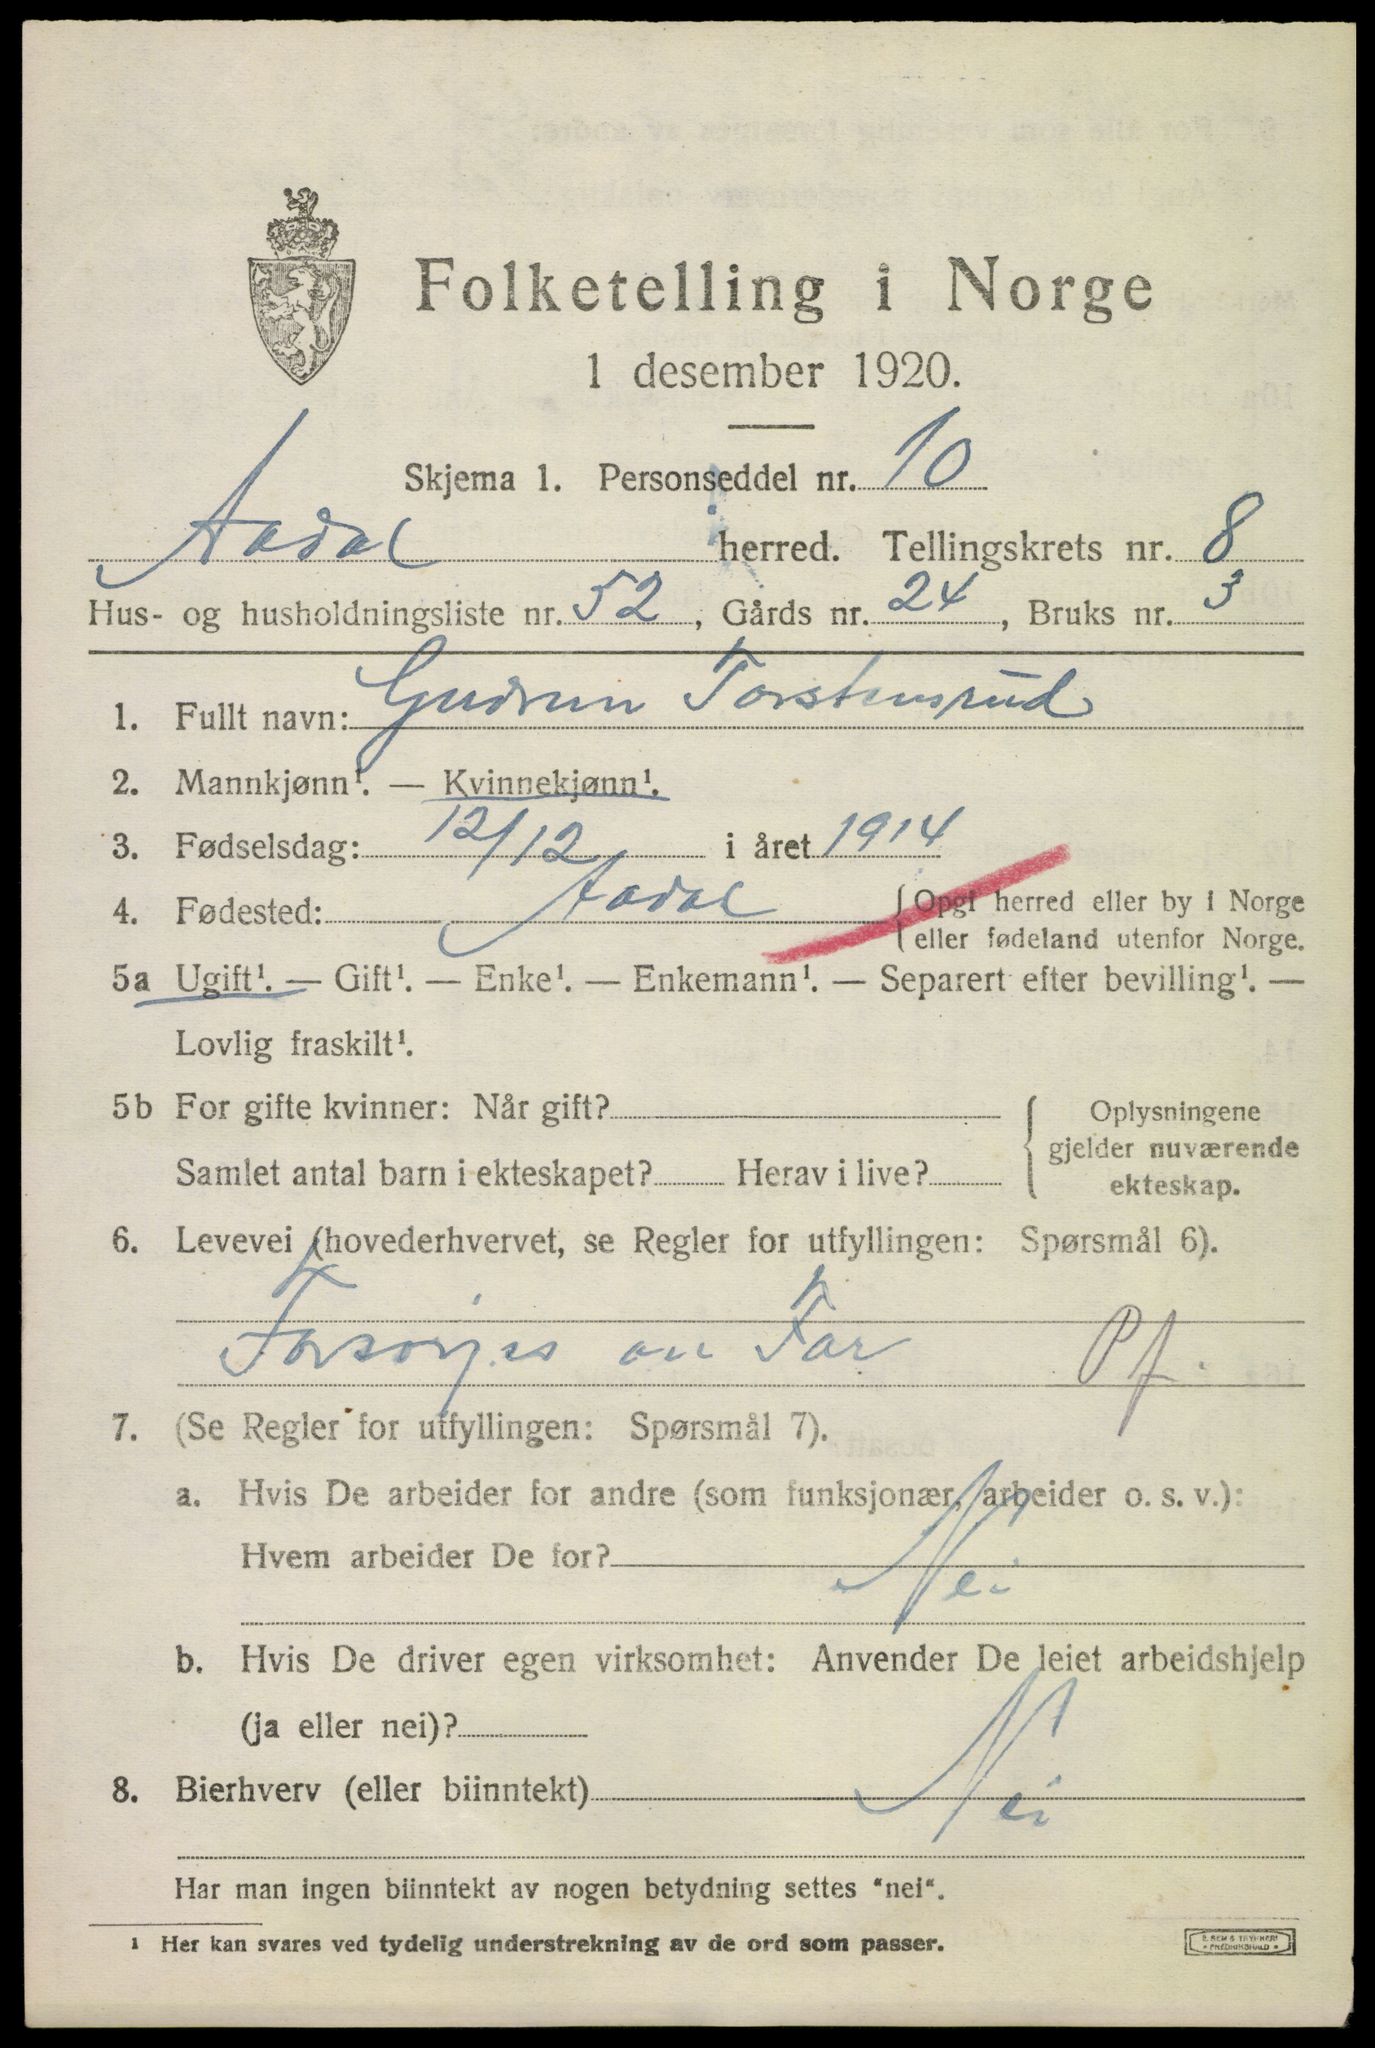 Folketelling i Norge
1 desember 1920.
Skjema 1. Personseddel nr. 10
Aadal herred. Tellingskrets nr. 8
Hus- og husholdningsliste nr. 52, Gårds nr. 24, Bruks nr. 3
1. Fullt navn: Gudrun Torstensrud
2. Mannkjønn¹. — Kvinnekjønn¹.
3. Fødselsdag: 12/12 i året 1914
4. Fødested: Aadal {Opgi herred eller by i Norge
eller fødeland utenfor Norge.
5a Ugift¹. — Gift¹. — Enke¹. — Enkemann¹. — Separert efter bevilling¹. —
Lovlig fraskilt¹.
5b For gifte kvinner: Når gift? { Oplysningene
gjelder nuværende
Samlet antal barn i ekteskapet? Herav i live?
ekteskap.
6. Levevei (hovederhvervet, se Regler for utfyllingen: Spørsmål 6).
Forsørjes av Far Pf.
7. (Se Regler for utfyllingen: Spørsmål 7).
a. Hvis De arbeider for andre (som funksjonær, arbeider o. s. v.):
Hvem arbeider De for? Nei
b. Hvis De driver egen virksomhet: Anvender De leiet arbeidshjelp
(ja eller nei)?
8. Bierhverv (eller biinntekt) Nei
Har man ingen biinntekt av nogen betydning settes "nei".
¹ Her kan svares ved tydelig understrekning av de ord som passer.